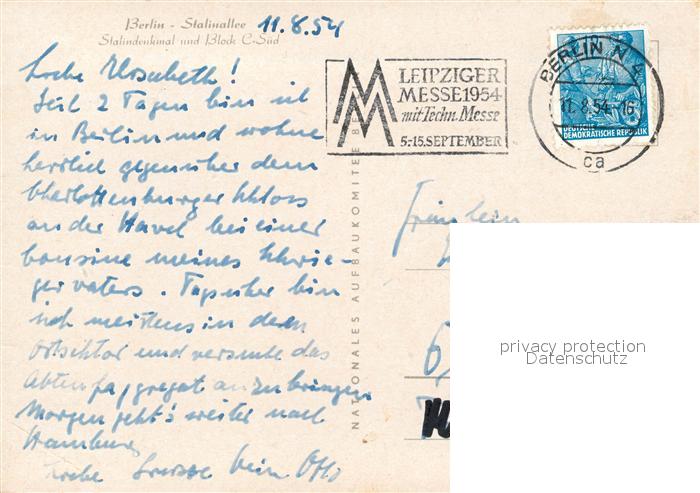 Berlin - Stalinallee
Stalindenkmal und Block C-Süd
11.8.54
Liebe Elisabeth!
Seit 2 Tagen bin ich
in Berlin und wohne
herrlich gegenüber dem
Charlottenburger Schloss
an der Havel bei einer
Cousine meines Schwie-
gervaters. Tagsüber bin
ich meistens in dem
Ostsektor und versuche das
anzubringen
Morgen geht's weiter nach
Hamburg
Liebe Grüsse Dein Otto
NATIONALES AUFBAUKOMITEE BE
LEIPZIGER
MESSE 1954
mit Techn. Messe
5.-15. SEPTEMBER
MM
BERLIN N 4
11.8.54.-16
ca
DEUTSCHE
DEMOKRATISCHE REPUBLIK
Fräulein
privacy protection
Datenschutz